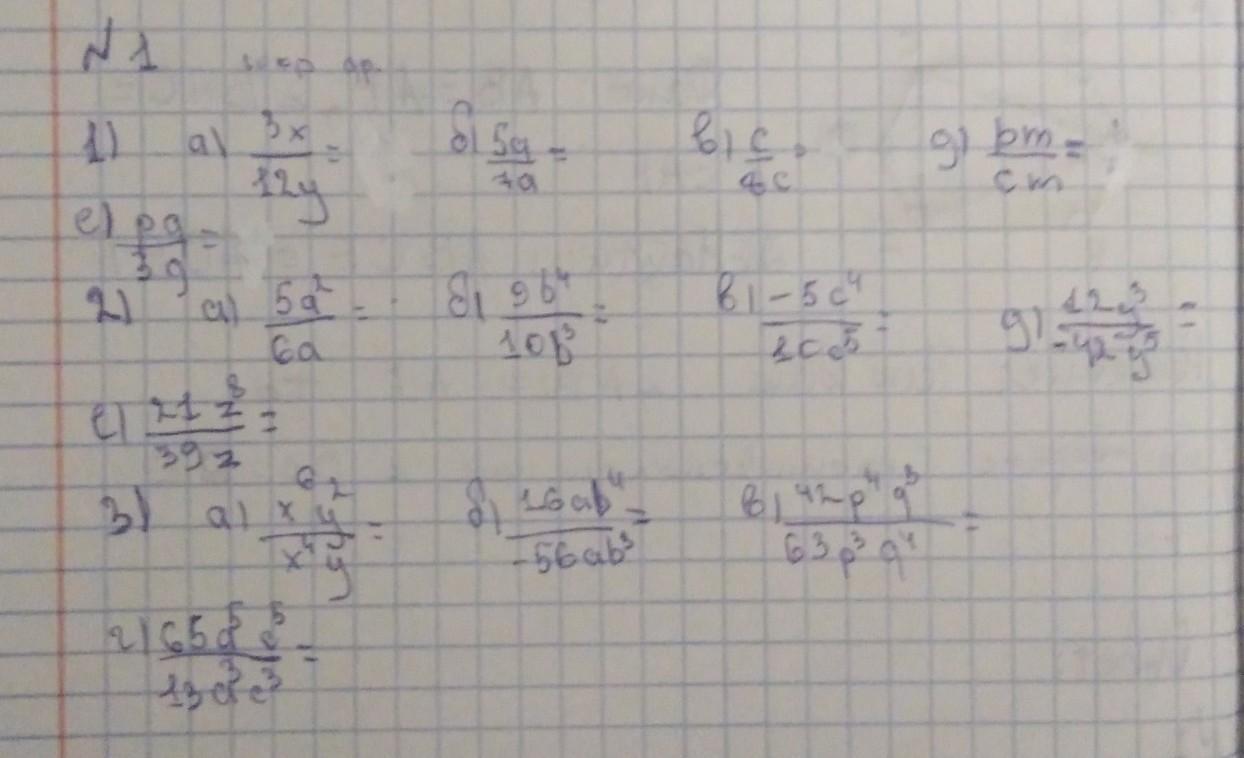 №1
1) а) 3x/12y = б) 5a/7a = в) c/8c = д) bm/cm =
е) pq/3q =
2) а) 5a²/6a = б) 9b⁴/10b³ = в) -5c⁴/10c⁵ = д) 12y³/-42y⁵ =
е) 21z⁸/39z =
3) а) x⁶y²/x⁴y = б) 16ab⁴/-56ab³ = в) 42p⁴q³/63p³q⁴ =
г) 65a⁵c⁵/13a³c³ =